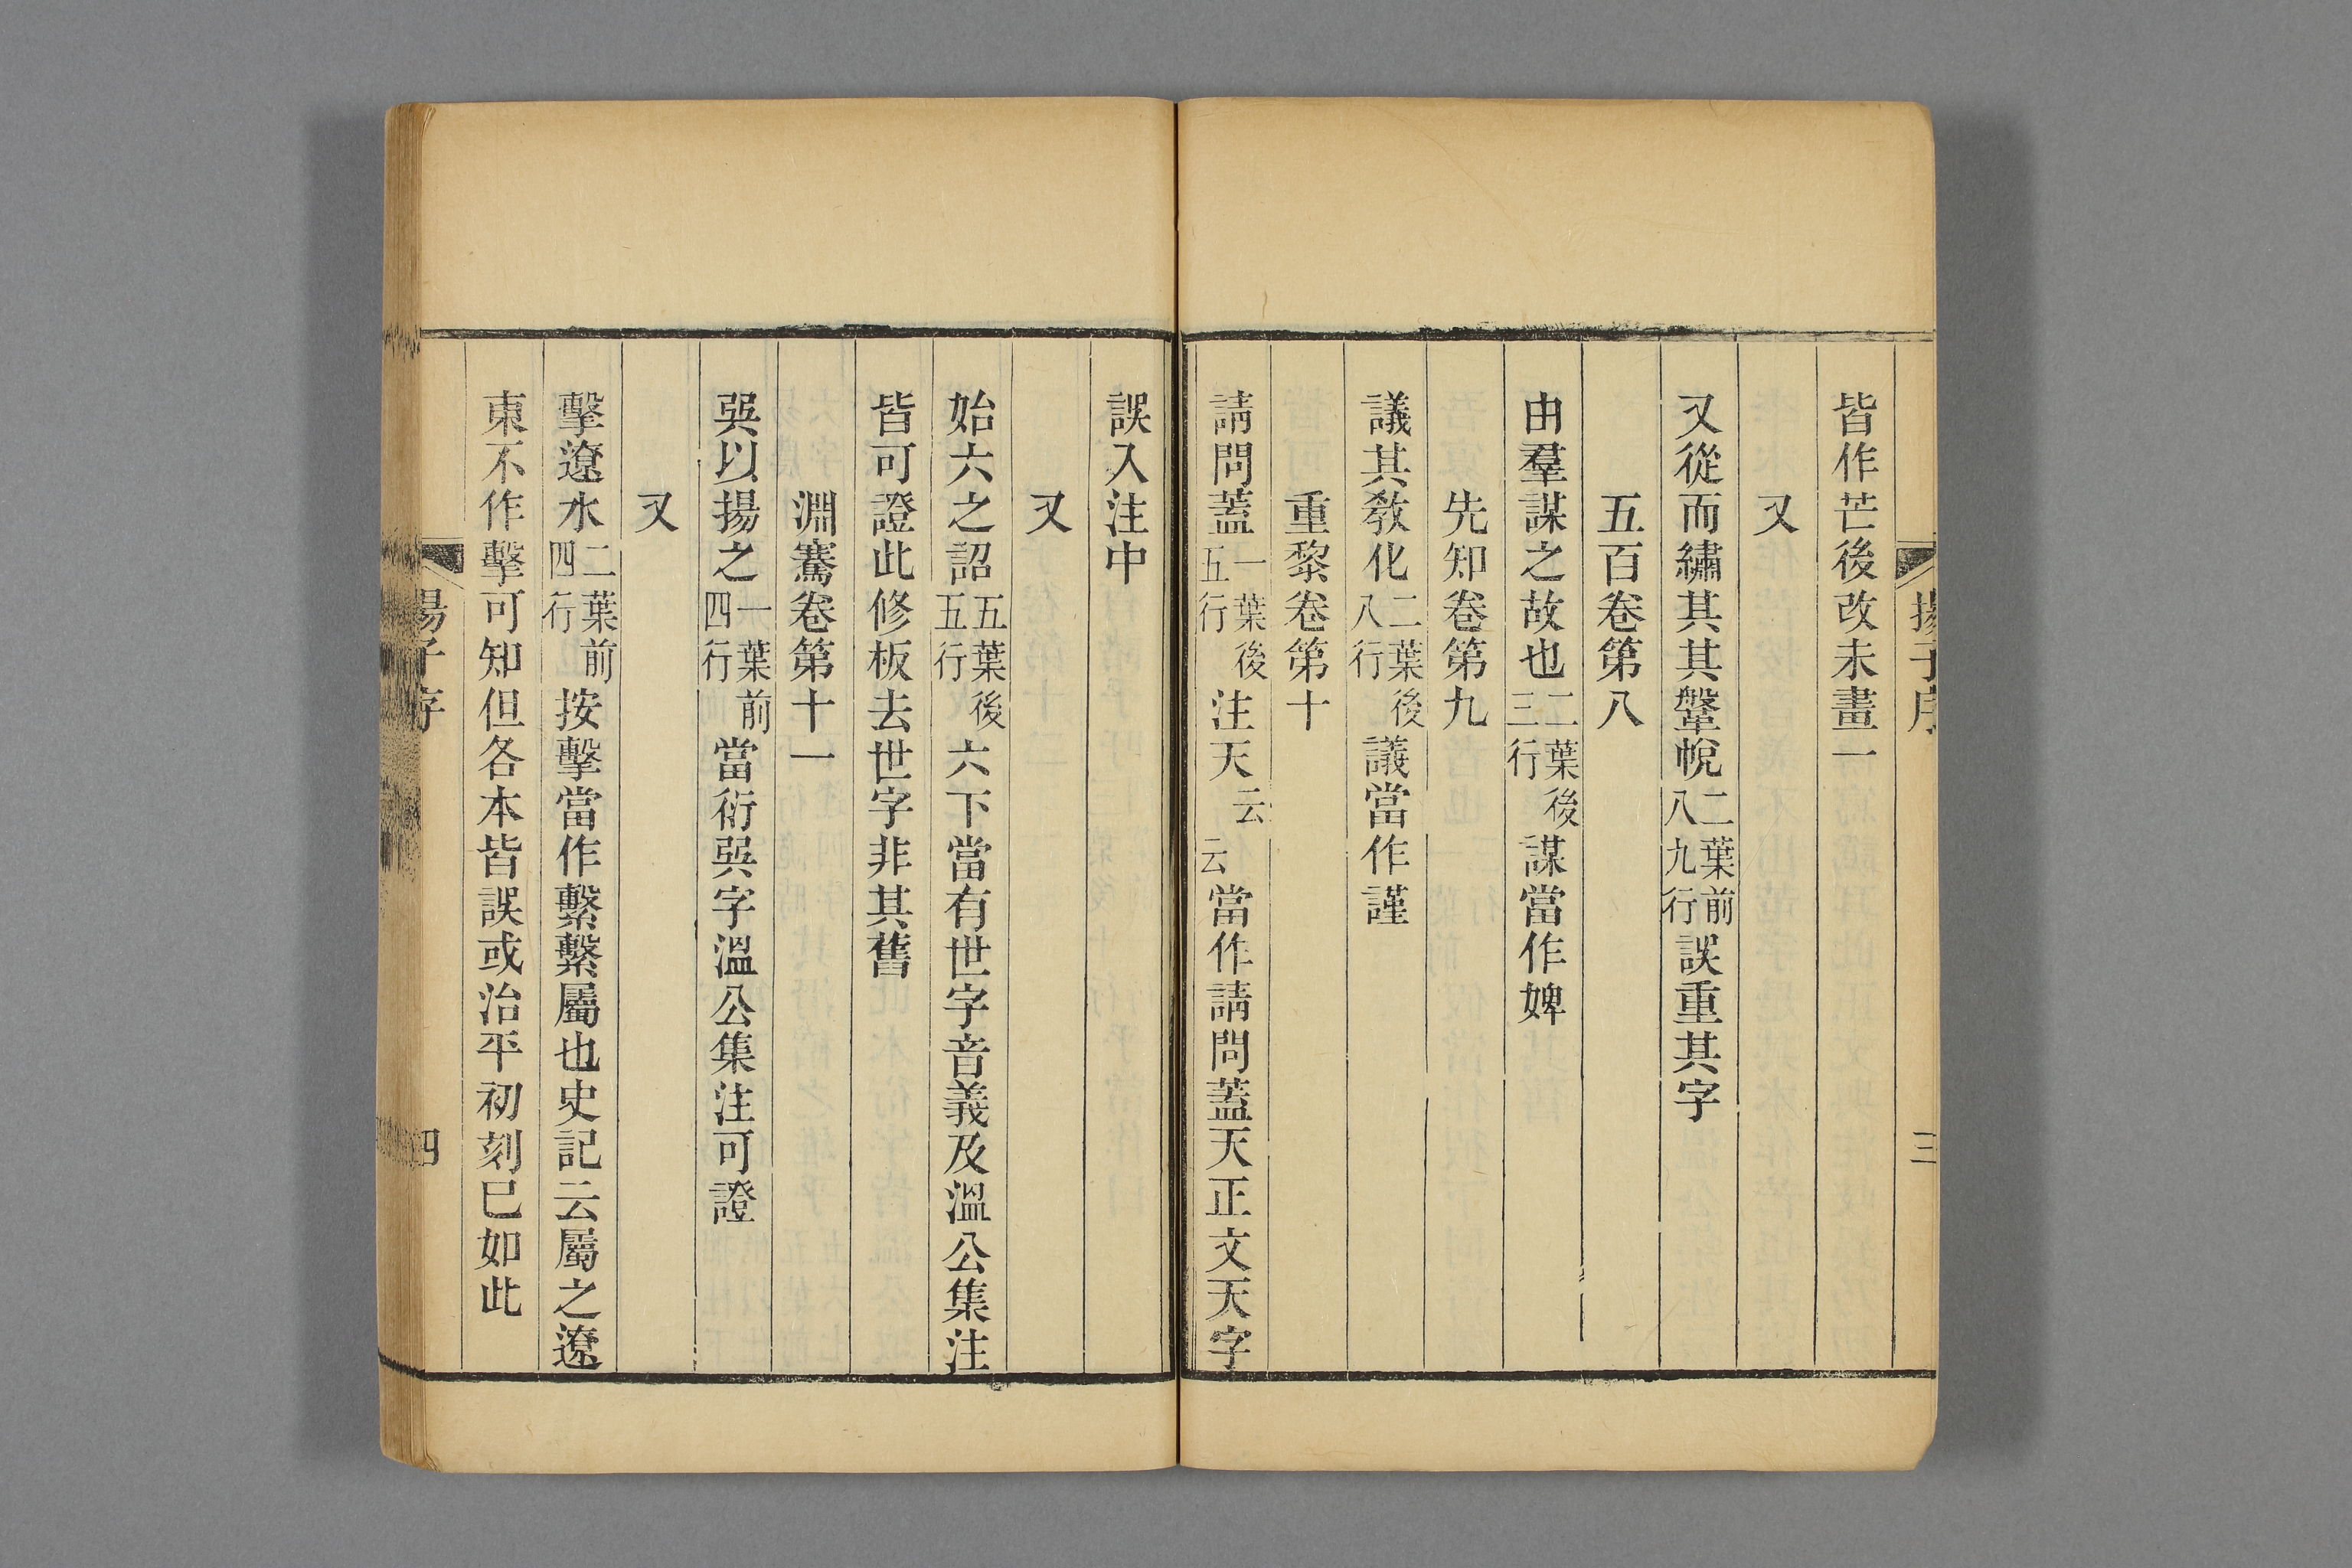 揚子序
三
皆作芒後改未畫一
又
又從而繡其其鞶帨二葉前八九行誤重其字
五百卷第八
由羣謀之故也二葉後三行謀當作婢
先知卷第九
議其敎化二葉後八行議當作謹
重黎卷第十
請問蓋一葉後五行注天云云當作請問蓋天正文天字
誤入注中
又
始六之詔五葉後五行六下當有世字音義及溫公集注
皆可證此修板去世字非其舊
淵騫卷第十一
吳以揚之一葉前四行當衍吳字溫公集注可證
又
擊遼水二葉前四行按擊當作繫繫屬也史記云屬之遼
東不作擊可知但各本皆誤或治平初刻已如此
揚子序
四